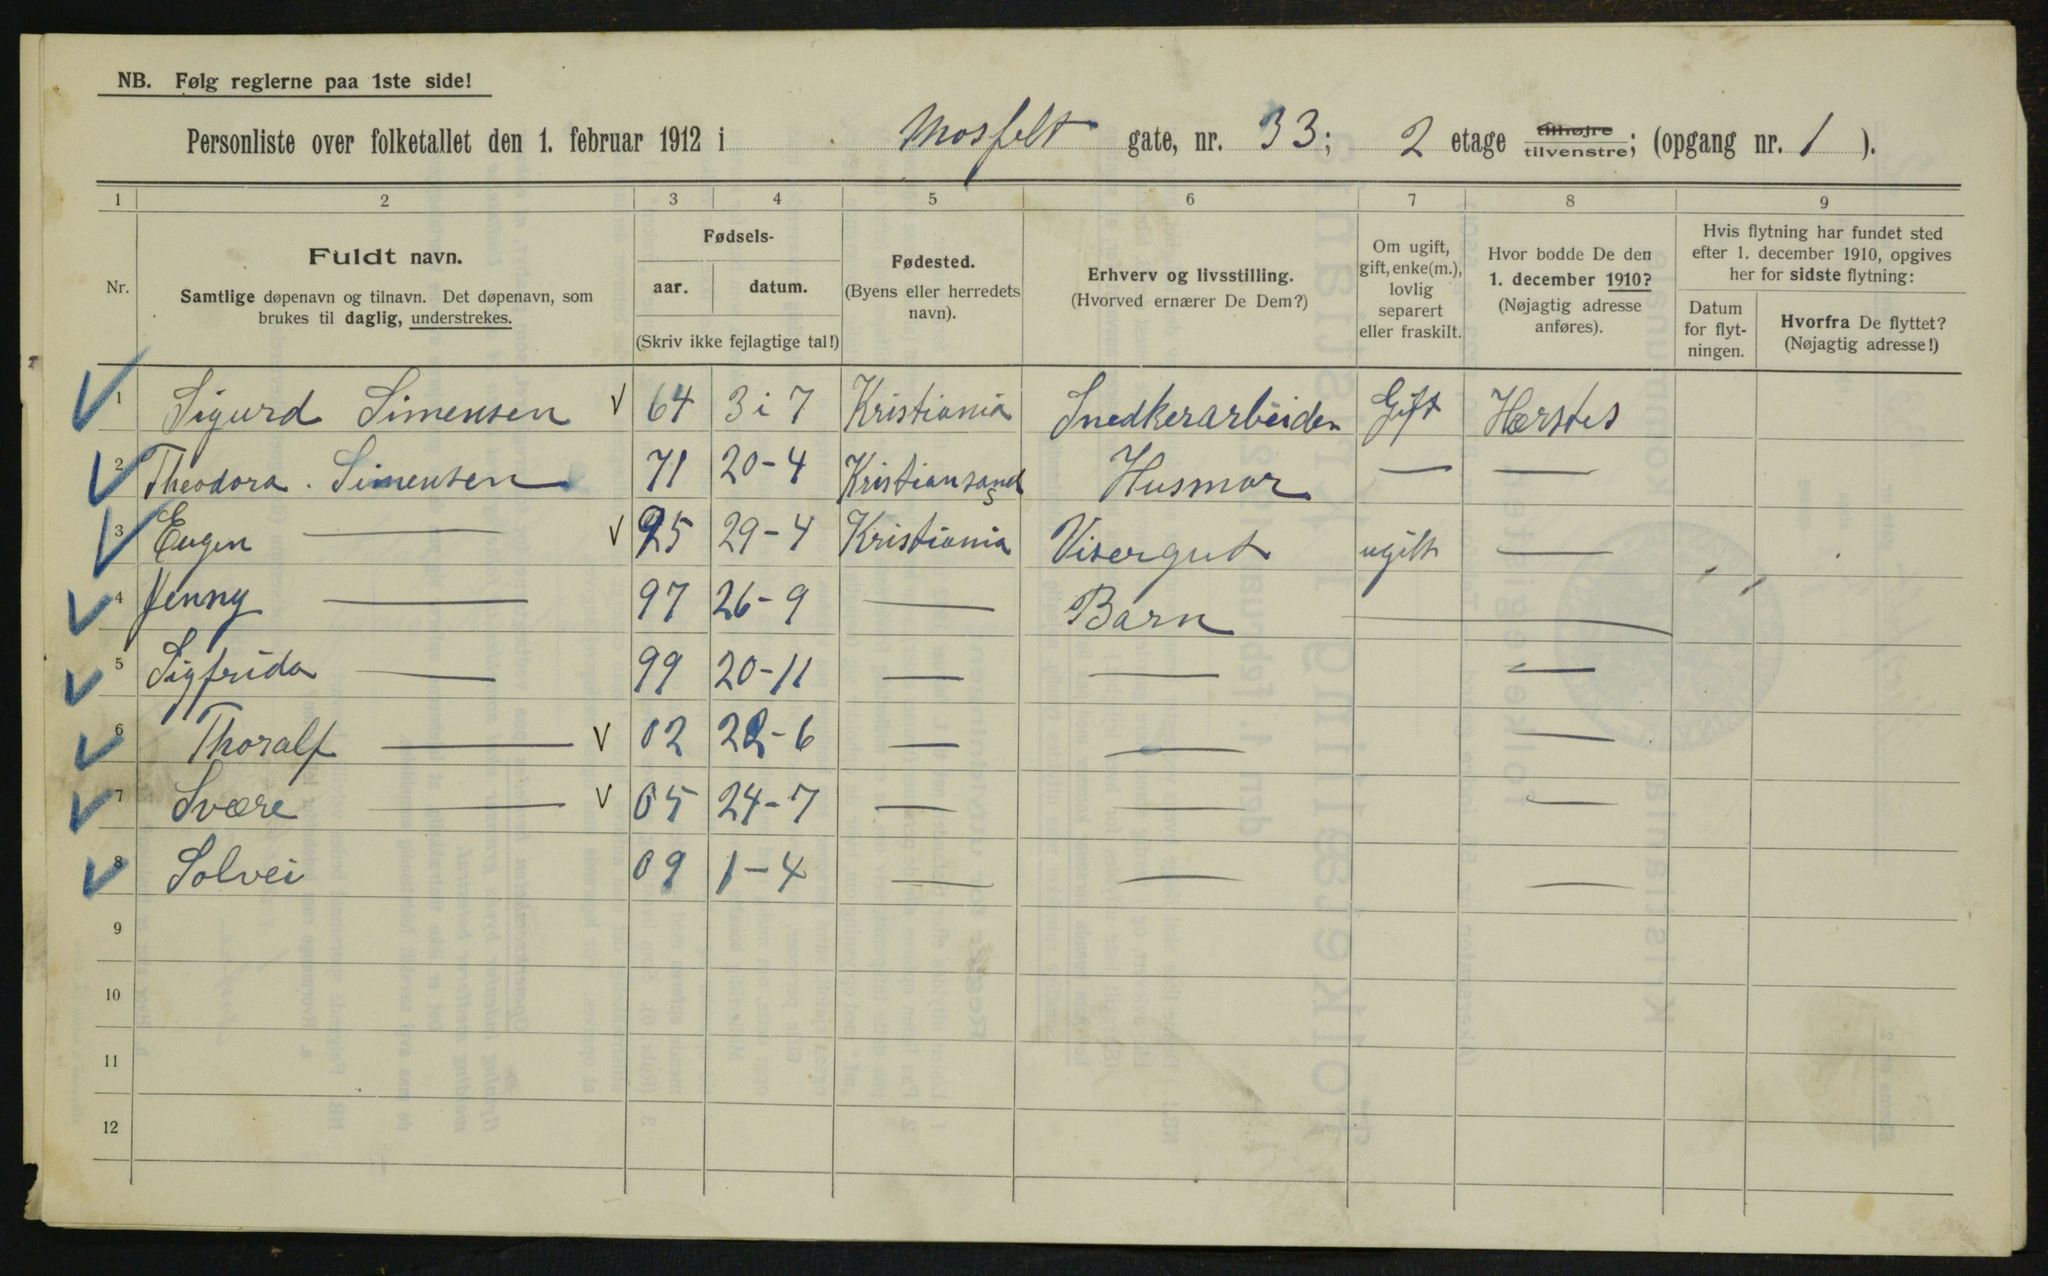 NB. Følg reglerne paa 1ste side!
Personliste over folketallet den 1. februar 1912 i Mosfelt gate, nr. 33; 2 etage tilhøjre tilvenstre; (opgang nr. 1 ).
1 2 3 4 5 6 7 8 9
Nr.
Fuldt navn.
Samtlige døpenavn og tilnavn. Det døpenavn, som
brukes til daglig, understrekes.
Fødsels-
aar. datum.
(Skriv ikke fejlagtige tal!)
Fødested.
(Byens eller herredets
navn).
Erhverv og livsstilling.
(Hvorved ernærer De Dem?)
Om ugift,
gift, enke(m.),
lovlig
separert
eller fraskilt.
Hvor bodde De den
1. december 1910?
(Nøjagtig adresse
anføres).
Hvis flytning har fundet sted
efter 1. december 1910, opgives
her for sidste flytning:
Datum
for flyt-
ningen.
Hvorfra De flyttet?
(Nøjagtig adresse!)
1 Sigurd Simensen 64 3 i 7 Kristiania Snedkerarbeider Gift Hærstes
2 Theodora Simensen 71 20-4 Kristiansand S Husmor — —
3 Eugen — 95 29-4 Kristiania Visergut ugift —
4 Jenny — 97 26-9 — Barn —
5 Sigfrida — 99 20-11 — — —
6 Thoralf — 02 22-6 — — —
7 Svære — 05 24-7 — — —
8 Solvei 09 1-4 — — —
9
10
11
12